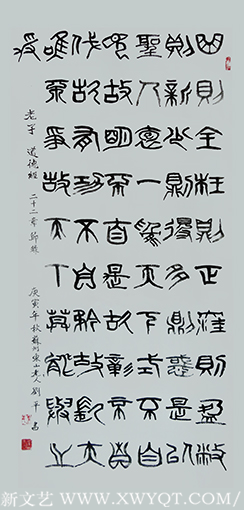 曲則全枉則正窪則盈敝
則新少則得多則惑是以
聖人褱一為天下式不自
見故明不自是故彰不自
伐故有功不自矜故長夫
唯不爭故天下莫能與之
爭
老子 道德經 二十二章 節錄
庚寅年秋蘇州東山老人劉平昌
新文艺 www.XWYQT.COM